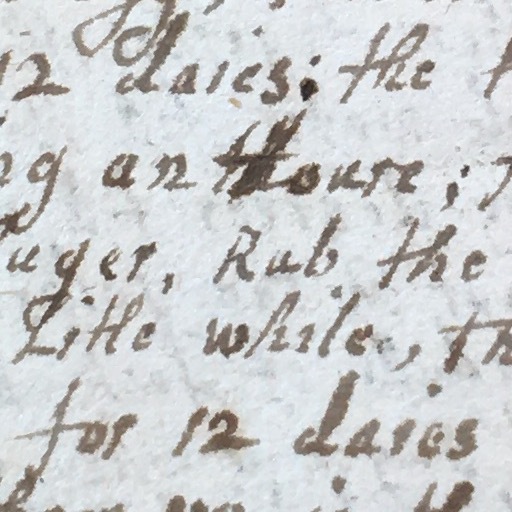 12 daies; the
an houre;
Rub the
Litle while, th
for 12 daies